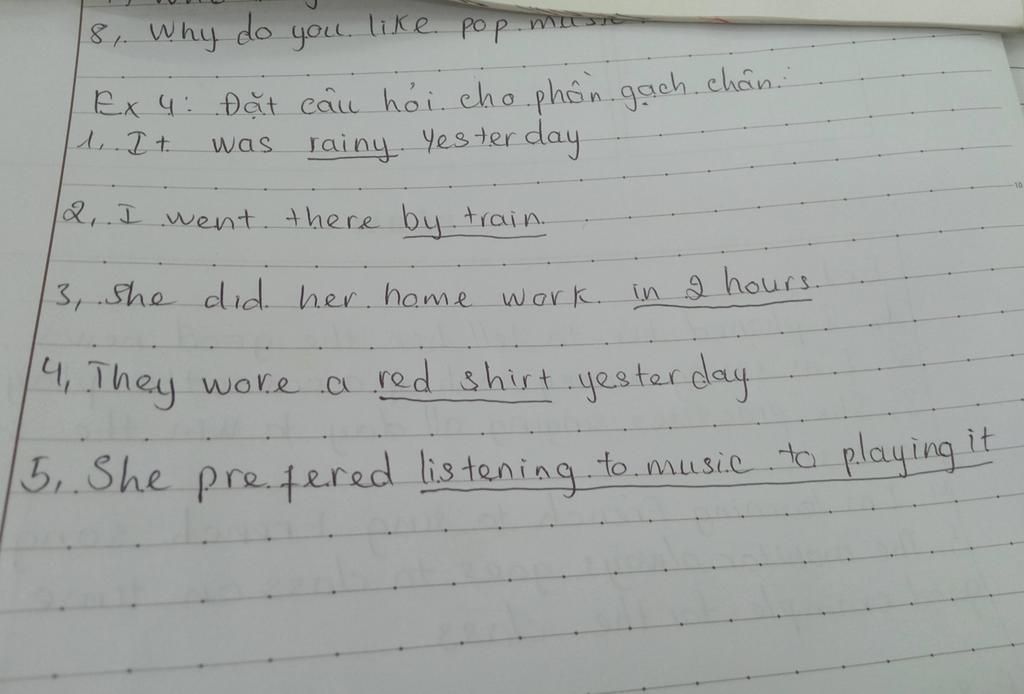 8, Why do you like pop music
Ex 4: Đặt câu hỏi cho phần gạch chân:
1, It was rainy yesterday
2, I went there by train
3, She did her home work in 2 hours.
4, They wore a red shirt yesterday
5, She prefered listening to music to playing it